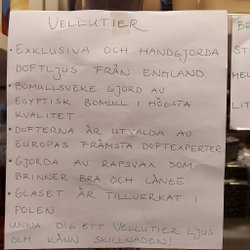 VELLUTIER
• EXKLUSIVA OCH HANDGJORDA
DOFTLJUS FRÅN ENGLAND
• BOMULLSVEKE GJORD AV
EGYPTISK BOMULL I HÖGSTA
KVALITET
• DOFTERNA ÄR UTVALDA AV
EUROPAS FRÄMSTA DOFTEXPERTER
• GJORDA AV RAPSVAX SOM
BRINNER BRA OCH LÄNGE
• GLASET ÄR TILLVERKAT I
POLEN
UNNA DIG ETT VELLUTIER LJUS
OCH KÄNN SKILLNADEN!